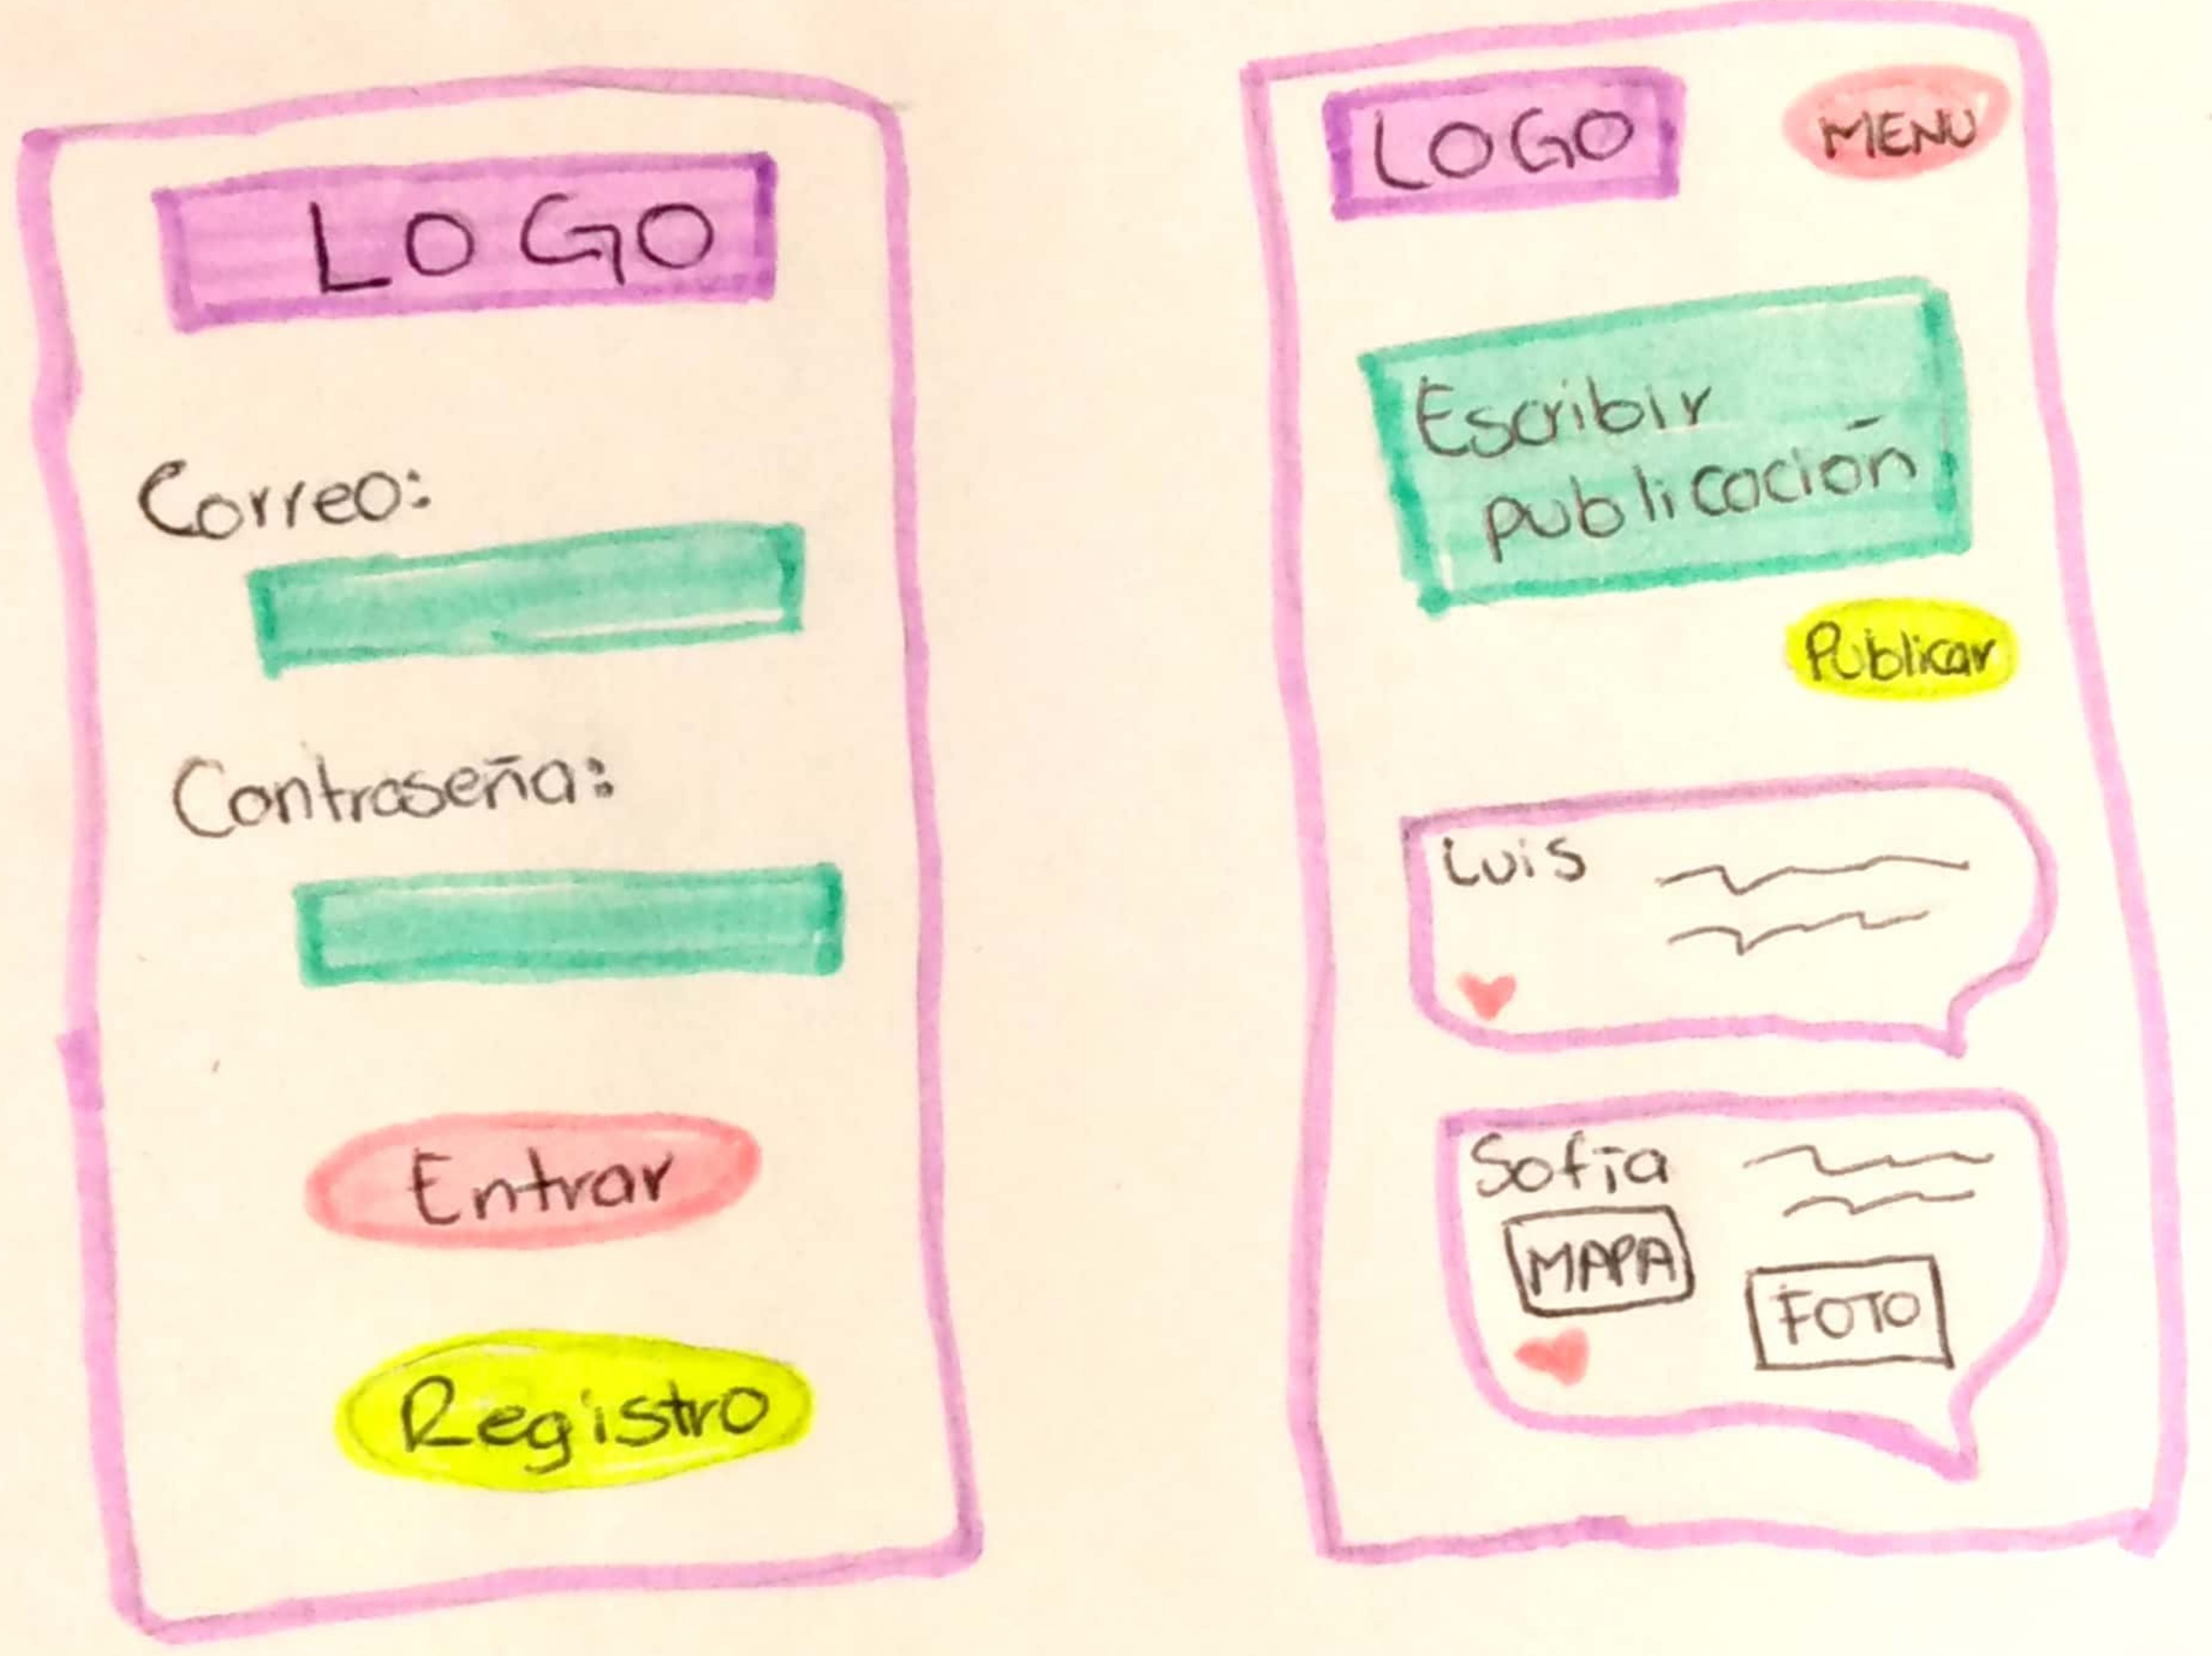 LOGO
Correo:
Contraseña:
Entrar
Registro
LOGO
MENU
Escribir
publicación
Publicar
Luis
Sofía
MAPA
FOTO